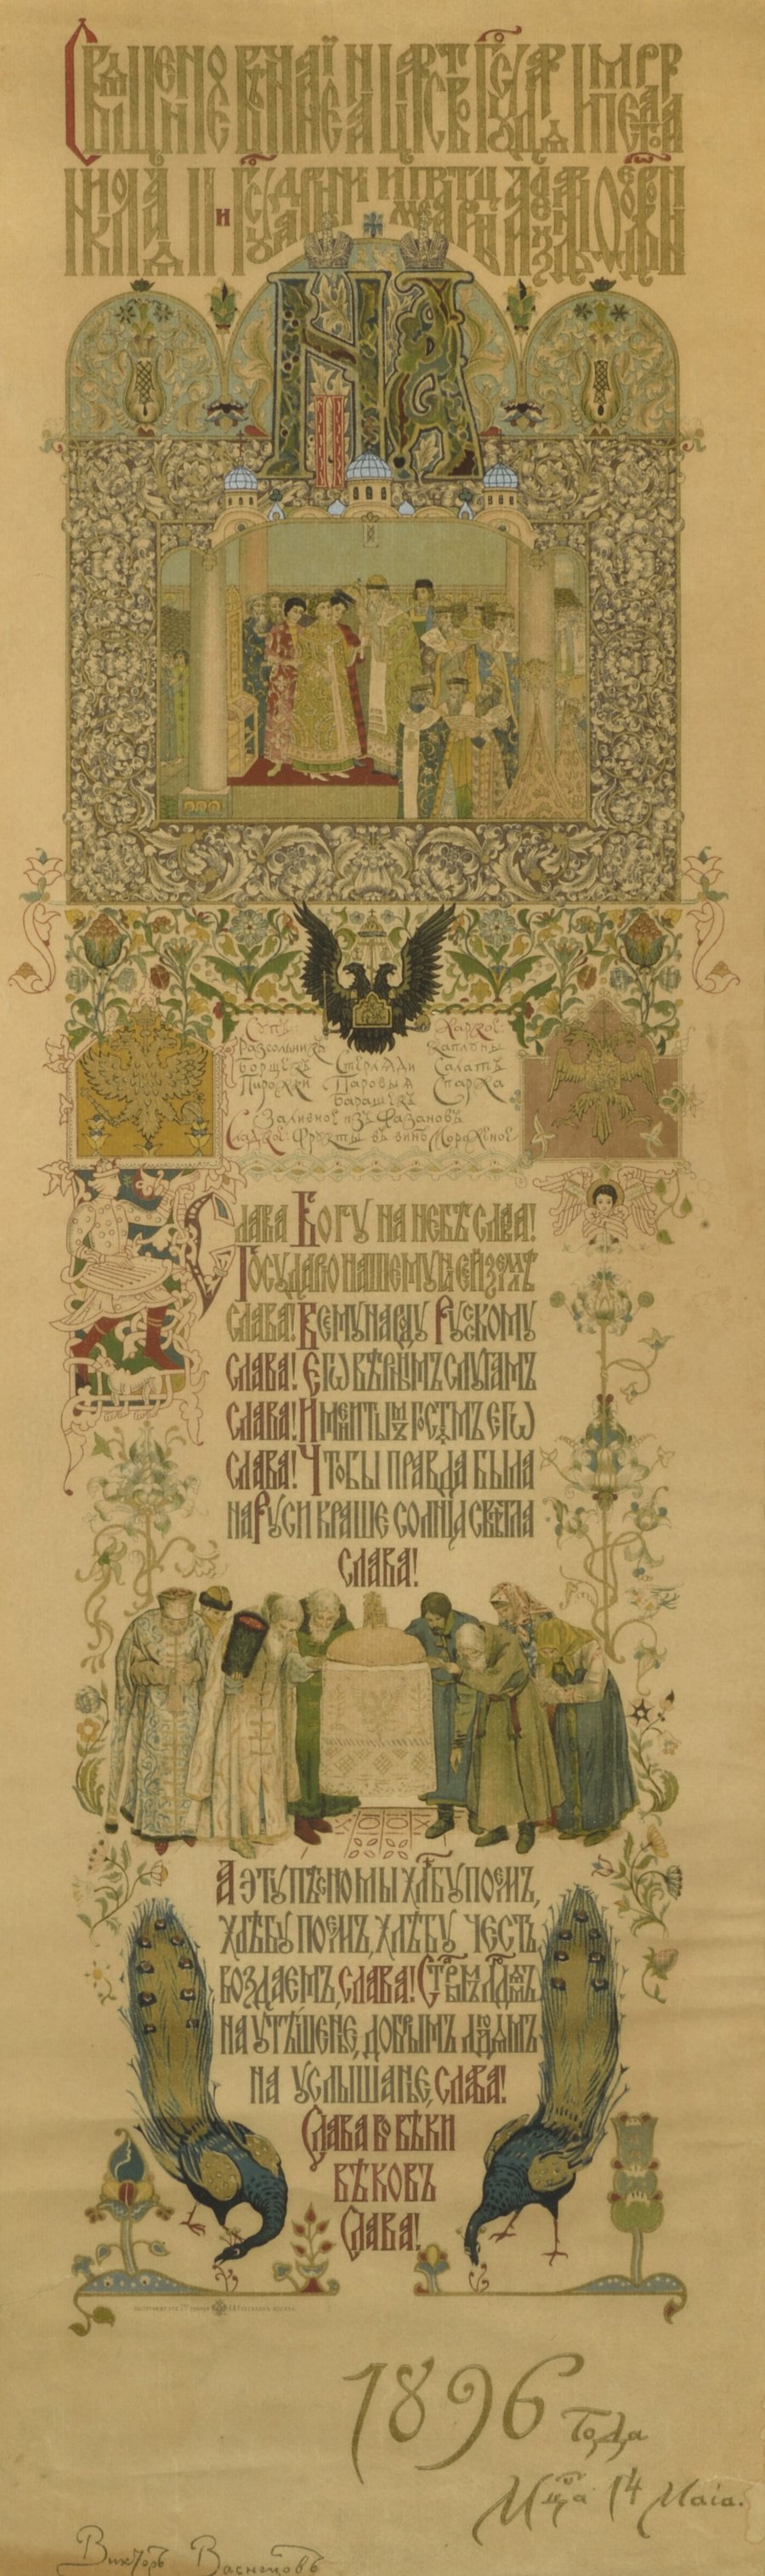 СВЯЩЕННОЕ ВѢНЧАНІЕ НА ЦАРСТВО ГСУДАРЯ ИМПЕРАТОРА
НИКОЛАЯ II И ГСУДАРЫНИ ИМПЕРАТРИЦЫ АЛЕКСАНДРЫ ѲЕОДОРОВНЫ
НА
II
Супъ:
Разсольникъ
Борщокъ
Пирожки
Стерляди
Паровыя
Барашекъ
Жаркое:
Каплуны
Салатъ
Спаржа
Заливное изъ Фазановъ
Сладкое: Фрукты въ винѣ Мороженое
СЛАВА БОГУ НА НЕБѢ СЛАВА!
ГОСУДАРЮ НАШЕМУ НА СЕЙ ЗЕМЛѢ
СЛАВА! ВСЕМУ НАРОДУ РУССКОМУ
СЛАВА! ЕГѠ ВѢРНЫМЪ СЛУГАМЪ
СЛАВА! ИМЕНИТЫМЪ ГОСТЯМЪ ЕГѠ
СЛАВА! ЧТОБЫ ПРАВДА БЫЛА
НА РУСИ КРАШЕ СОЛНЦА СВѢТЛА
СЛАВА!
А ЭТУ ПѢСНЮ МЫ ХЛѢБУ ПОЕМЪ,
ХЛѢБУ ПОЕМЪ, ХЛѢБУ ЧЕСТЬ
ВОЗДАЕМЪ, СЛАВА! СТАРЫМЪ ЛЮДЯМЪ
НА УТѢШЕНЬЕ, ДОБРЫМЪ ЛЮДЯМЪ
НА УСЛЫШАНЬЕ, СЛАВА!
СЛАВА ВО ВѢКИ
ВѢКОВЪ
СЛАВА!
1896 Года
Мца 14 Маія.
Викторъ Васнецовъ